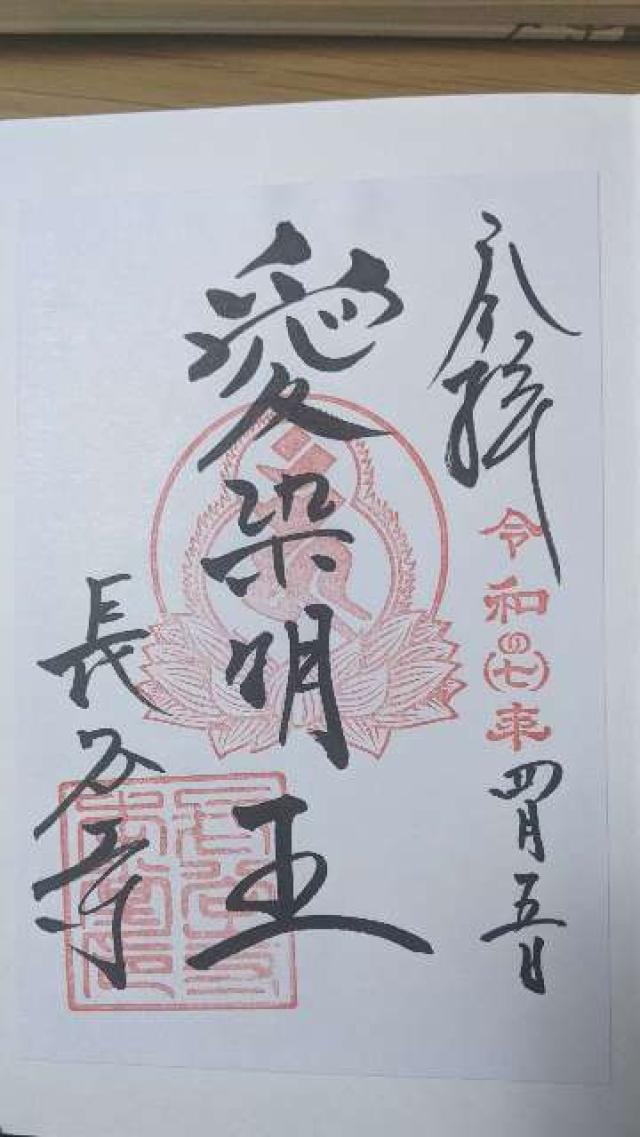 奉拝
令和七年
四月五日
愛染明王
長 寺